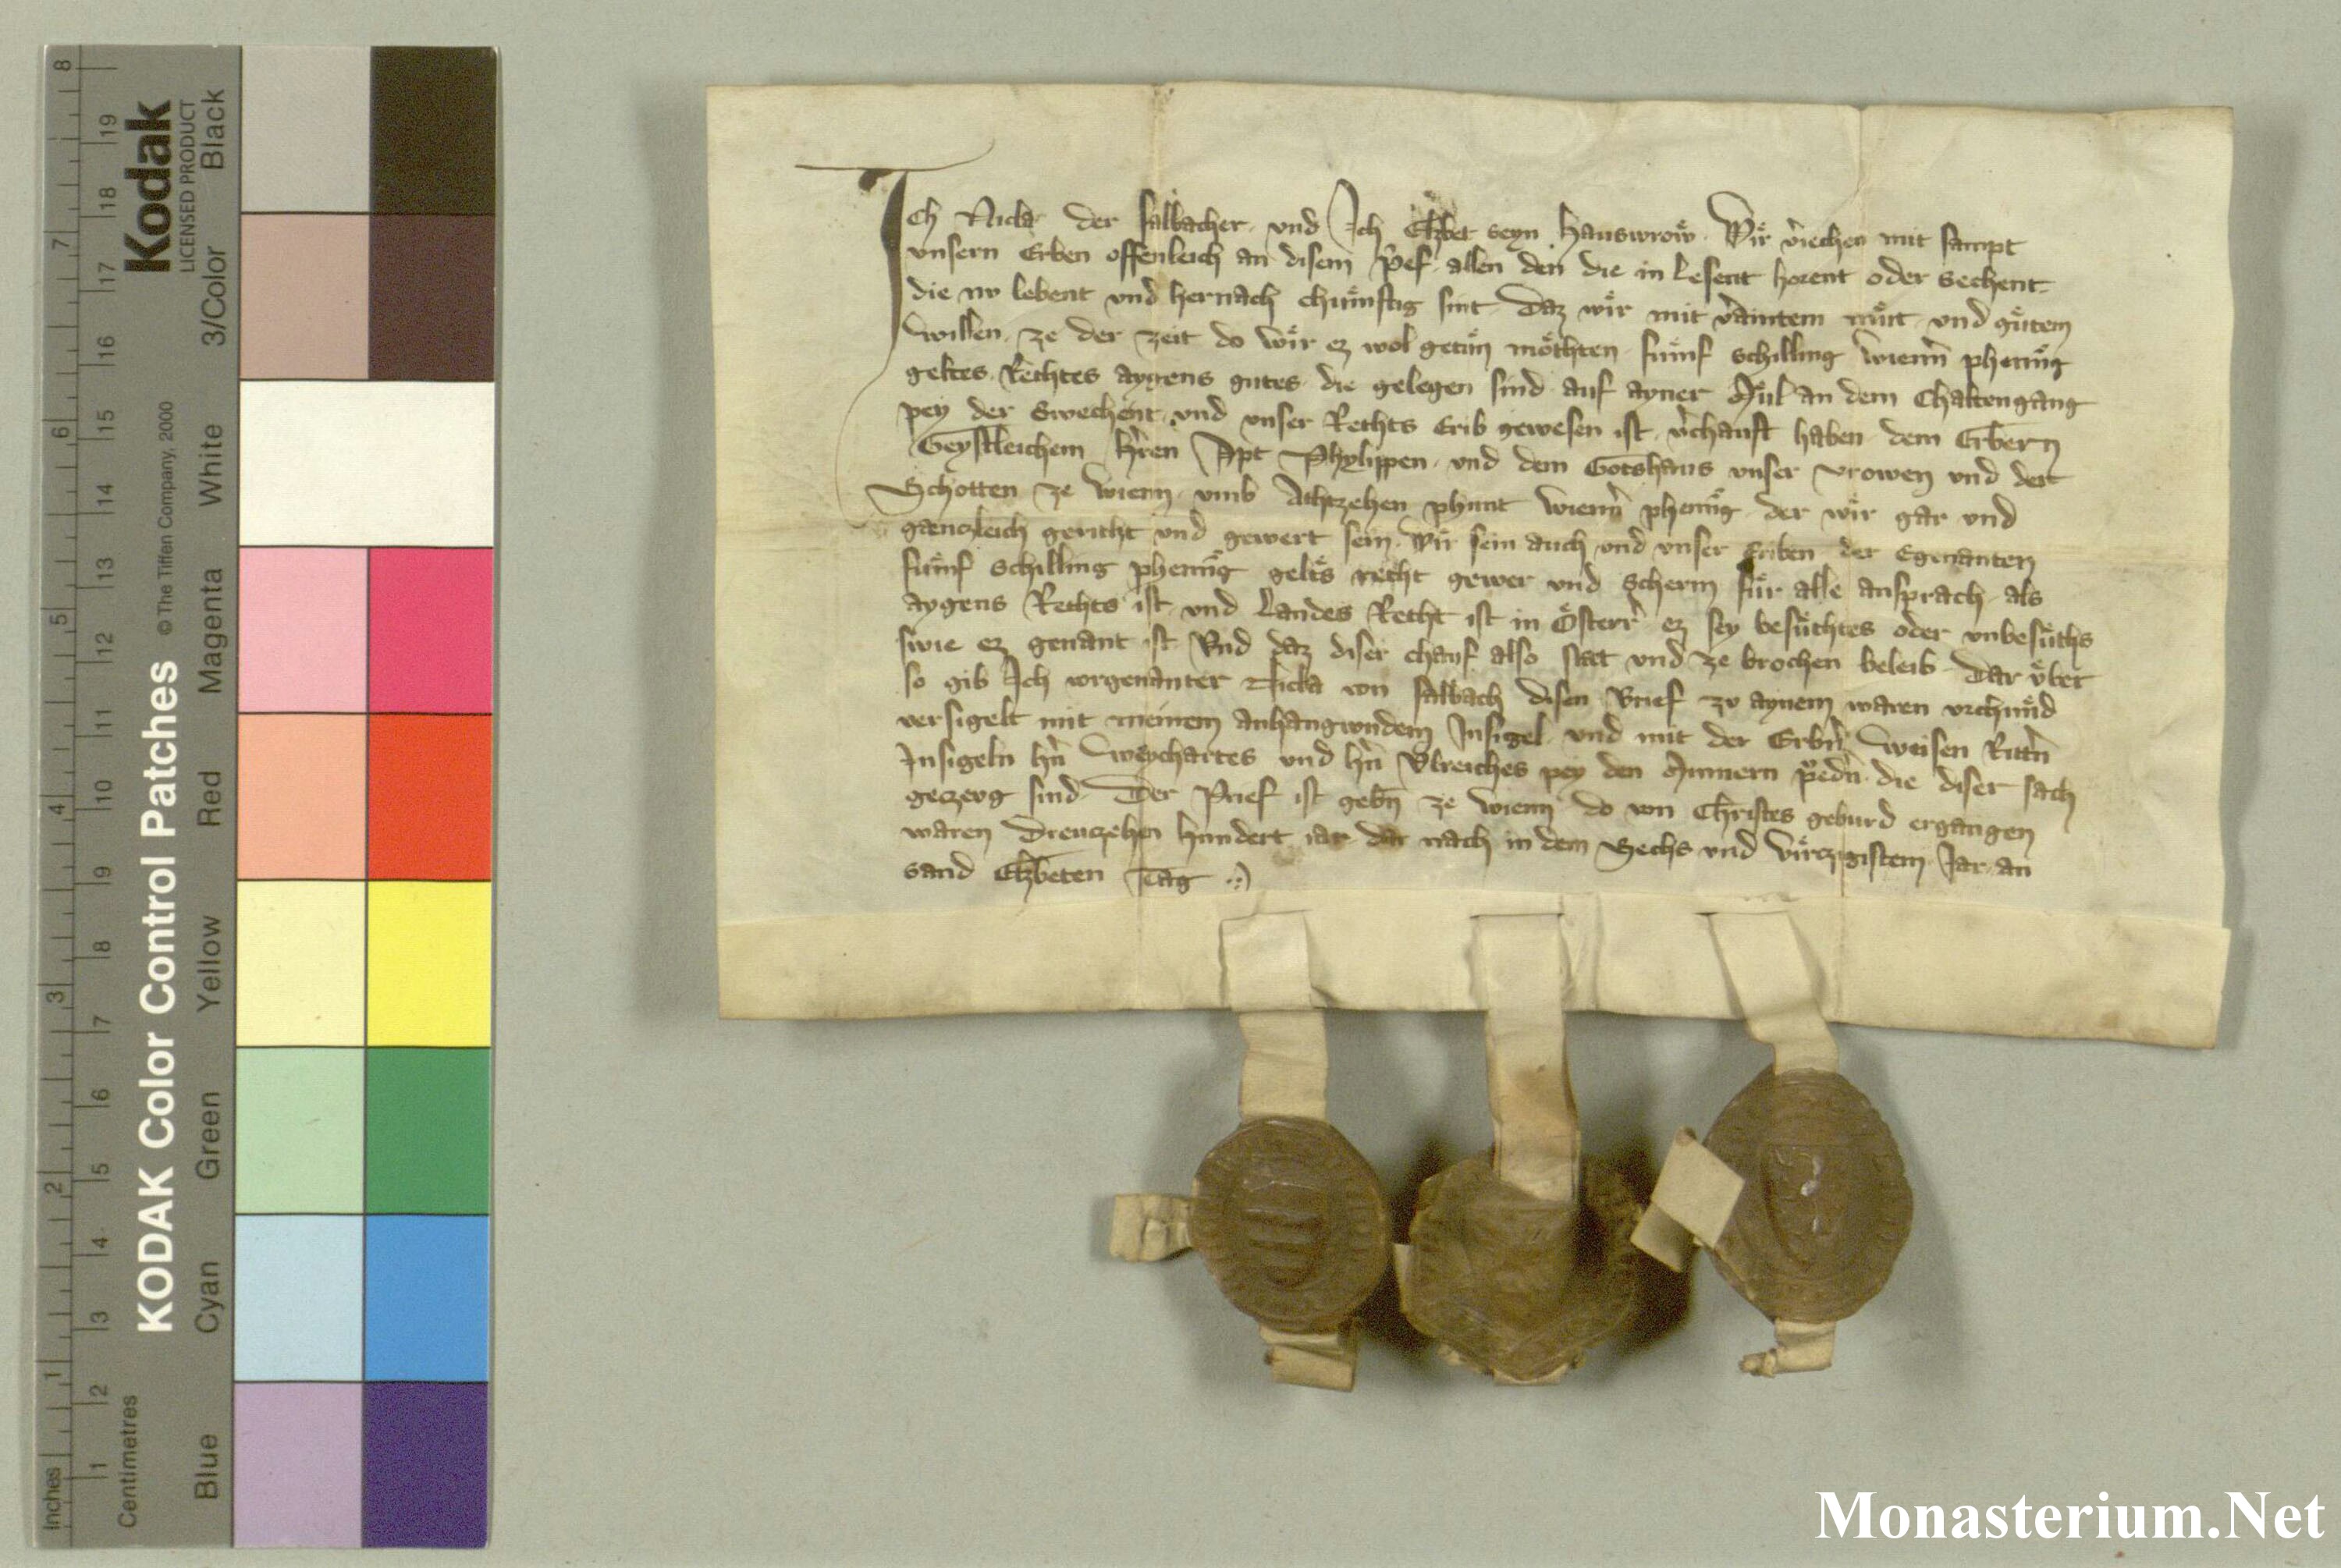 Ich Nicla der salbacher und Ich Elzbet seyn hauswrow Wir v̾iechen mit sampt
unsern Erben offenleich an disem prief allen den die in lesent horent oder sechent
die nv lebent und hernach chumftig sint Daz wir mit v̾daintem mut und gutem
willen ze der zeit do wir ez wol getun mochten fumf schilling wienn̾ phennig
geltes Rechtes aygens gutes die gelegen sind auf ayner Mul an dem Chaltengang
pey der Swechent und unser Rechts Erib gewesen ist v̾chauft haben dem Erbern
Geystleichem h̾ren Apt Phylippen und dem Gotshaus unser vrowen und der
Schotten ze wienn umb Achtzehen phunt wienn̾ phennig der wir gar und
gænczleich gericht und gewert sein Wir sein auch und unser Eriben der Egenanten
fumf schilling phennig gelts recht gewer und scherm fur alle ansprach als
aygens Rechts ist und Landes Recht ist in Osterr̾ ez sey besuchtes oder unbesuchts
swie ez genant ist Und daz diser chauf also stæt und ze brochen beleib Dar uber
so gib Ich vorgenanter Nicla von salbach disen Brief zv aynem waren vrchund
versigelt mit meinem anhangvndem Insigel und mit der Erbn̾ weisen Rittn̾
Insigeln hn̾ weychartes und hn̾ Vlreiches pey den Minnern p̾edn̾ die diser sach
geczevg sind Der Prief ist gebn̄ ze wienn do von Christes geburd ergangen
waren Dreuczehen hundert iar dar nach in dem Sechs und virczigistem Jar an
sand Elzbeten Tag
KODAK Color Control Patches © The Tiffen Company, 2000
Kodak
LICENSED PRODUCT
Blue Cyan Green Yellow Red Magenta White 3/Color Black
Centimetres 1 2 3 4 5 6 7 8 9 10 11 12 13 14 15 16 17 18 19
Inches 1 2 3 4 5 6 7 8
Monasterium.Net